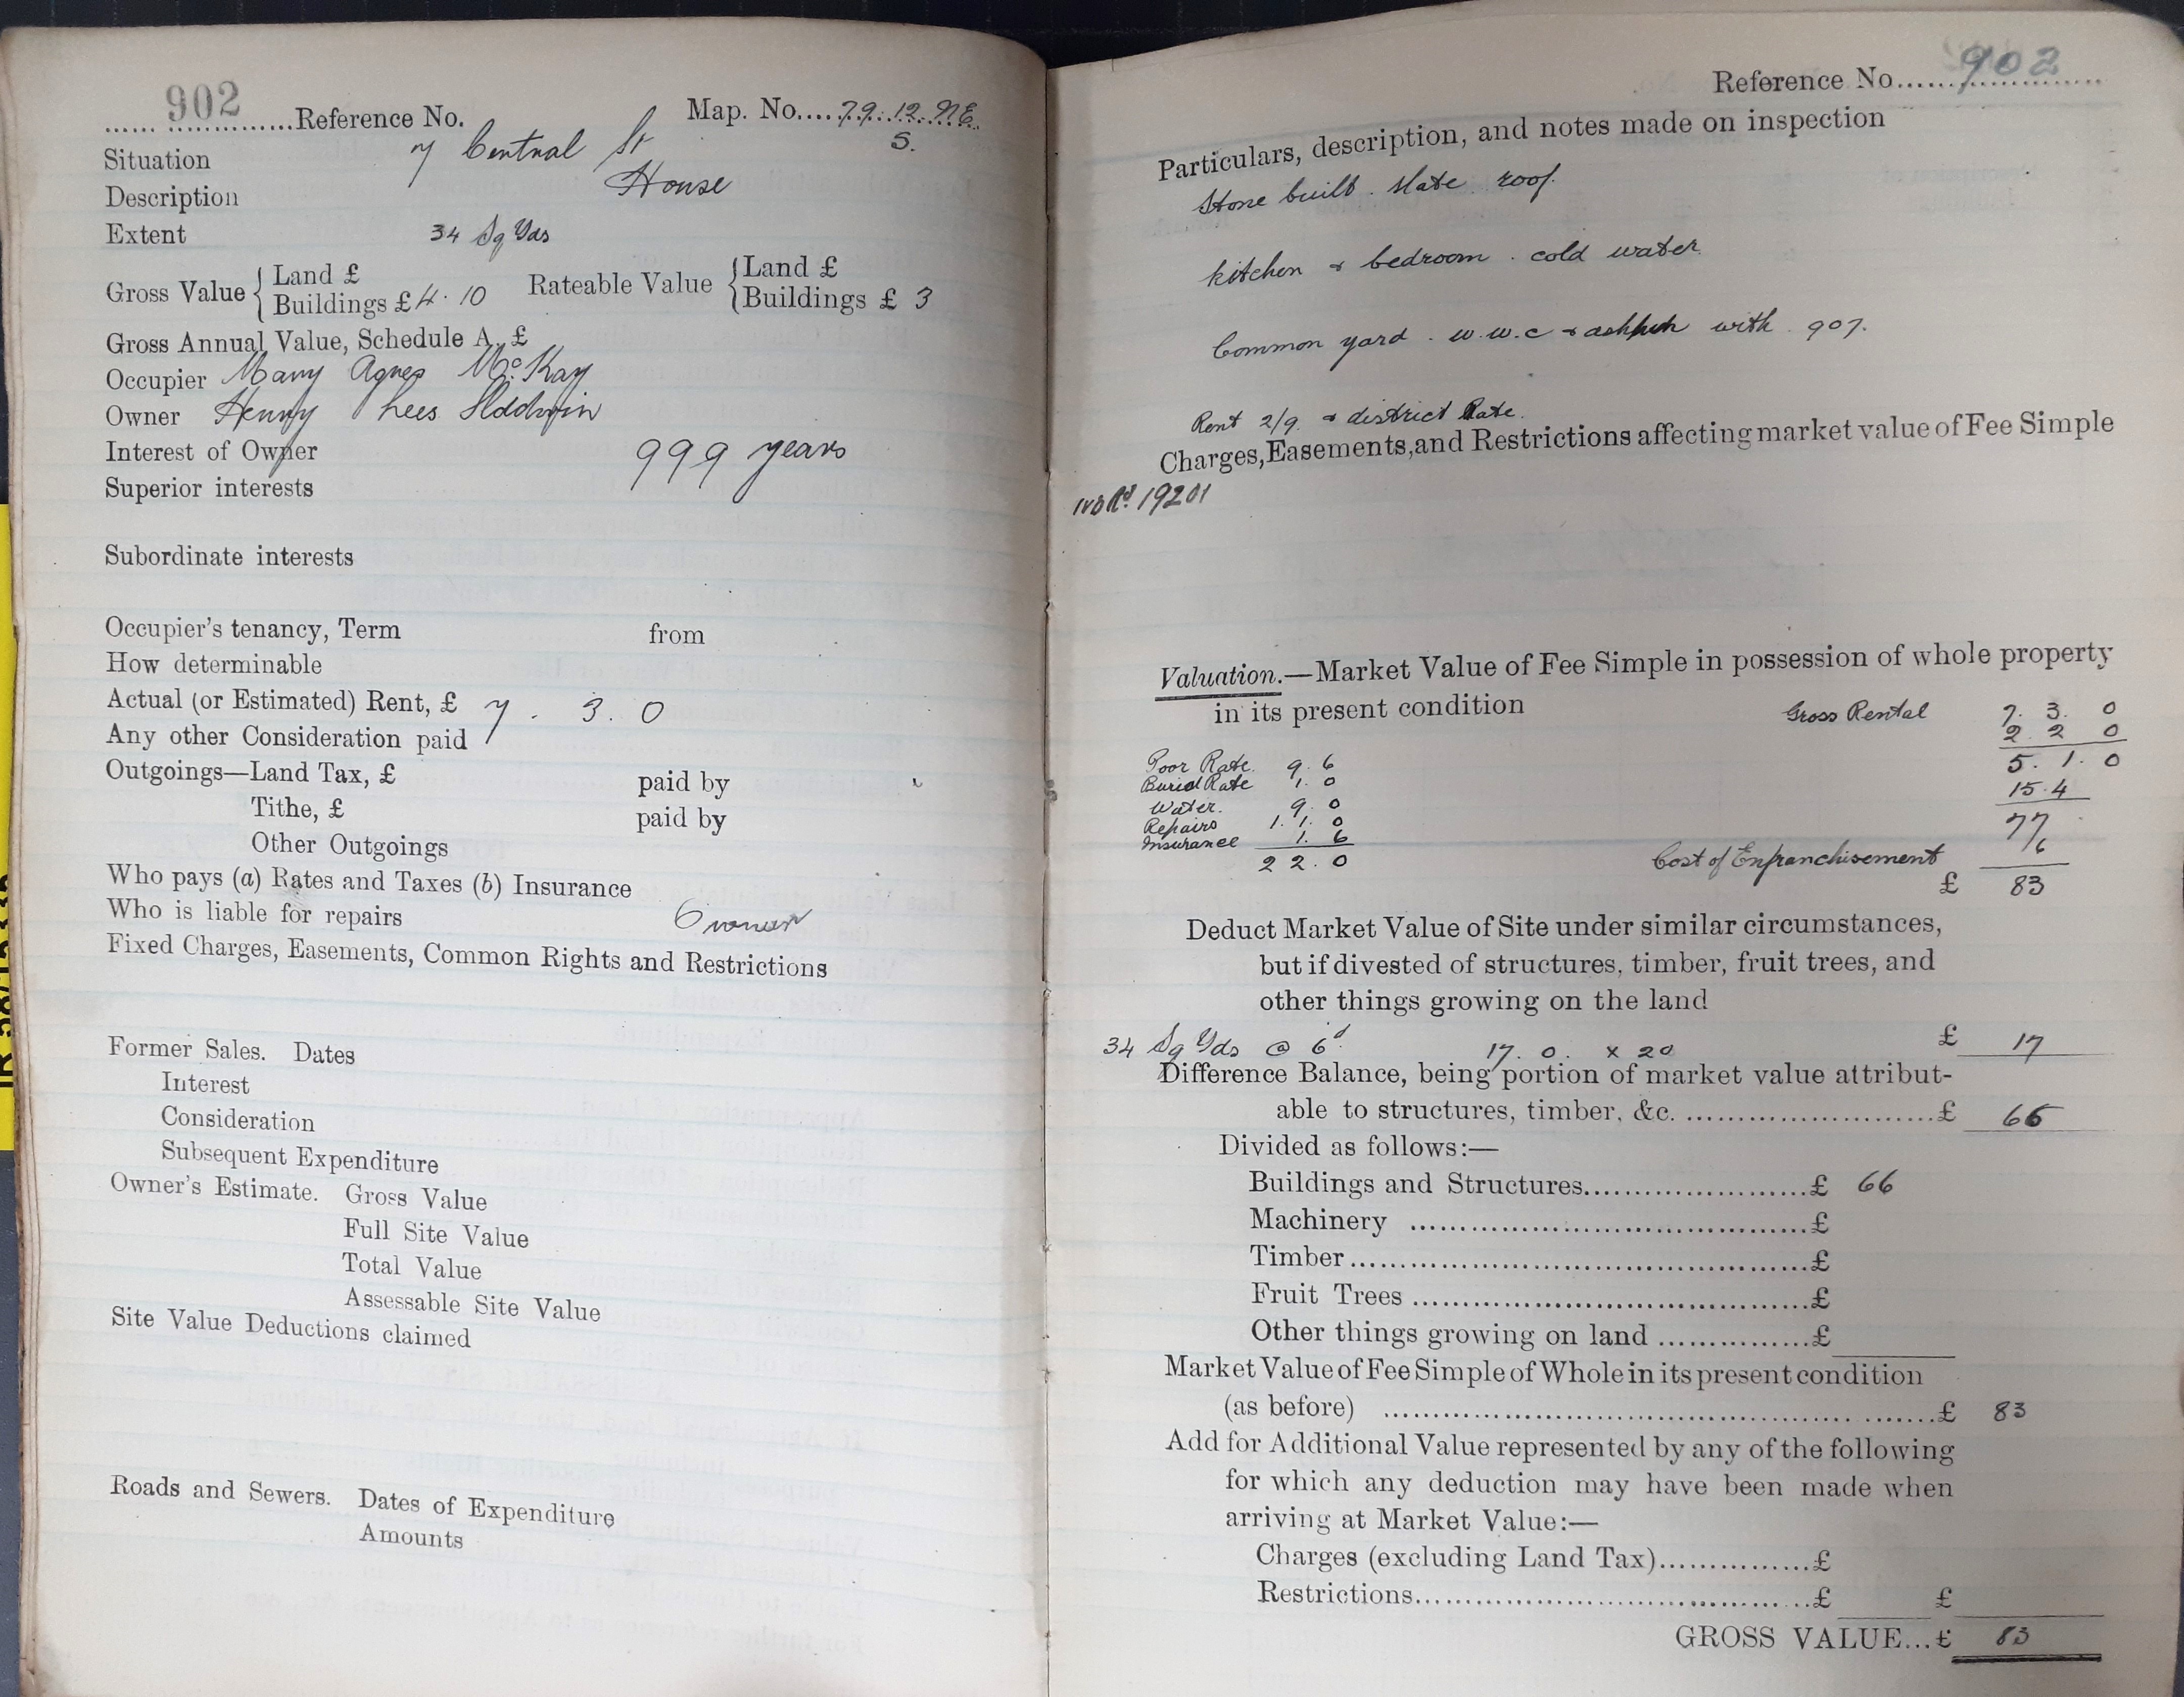 902 Reference No. Map. No. 79.12.NE
S.
Situation 7 Central St
Description House
Extent 34 Sq Yds
Gross Value { Land £ Rateable Value { Land £
Buildings £ 4.10 Buildings £ 3
Gross Annual Value, Schedule A, £
Occupier Mary Agnes McKay
Owner Henry Lees
Interest of Owner 999 years
Superior interests
Subordinate interests
Occupier's tenancy, Term from
How determinable
Actual (or Estimated) Rent, £ 7. 3. 0
Any other Consideration paid
Outgoings—Land Tax, £ paid by
Tithe, £ paid by
Other Outgoings
Who pays (a) Rates and Taxes (b) Insurance
Who is liable for repairs Owner
Fixed Charges, Easements, Common Rights and Restrictions
Former Sales. Dates
Interest
Consideration
Subsequent Expenditure
Owner's Estimate. Gross Value
Full Site Value
Total Value
Assessable Site Value
Site Value Deductions claimed
Roads and Sewers. Dates of Expenditure
Amounts
Reference No. 902
Particulars, description, and notes made on inspection
Stone built. slate roof.
kitchen & bedroom. cold water
Common yard. w.w.c & with 907.
Rent 2/9 & district Rate.
Charges, Easements, and Restrictions affecting market value of Fee Simple
19201
Valuation.—Market Value of Fee Simple in possession of whole property
in its present condition Gross Rental 7. 3. 0
2 2 0
Poor Rate. 9. 6 5. 1. 0
Burial Rate 1. 0 15.4
Water. 9. 0
Repairs 1. 1. 0 77
Insurance 1. 6
2 2. 0 Cost of Enfranchisement 6
£ 83
Deduct Market Value of Site under similar circumstances,
but if divested of structures, timber, fruit trees, and
other things growing on the land
34 Sq Yds @ 6d 17. 0. x 20 £ 17
Difference Balance, being portion of market value attribut-
able to structures, timber, &c. £ 66
Divided as follows:—
Buildings and Structures £ 66
Machinery £
Timber £
Fruit Trees £
Other things growing on land £
Market Value of Fee Simple of Whole in its present condition
(as before) £ 83
Add for Additional Value represented by any of the following
for which any deduction may have been made when
arriving at Market Value:—
Charges (excluding Land Tax) £
Restrictions £ £
GROSS VALUE... £ 83